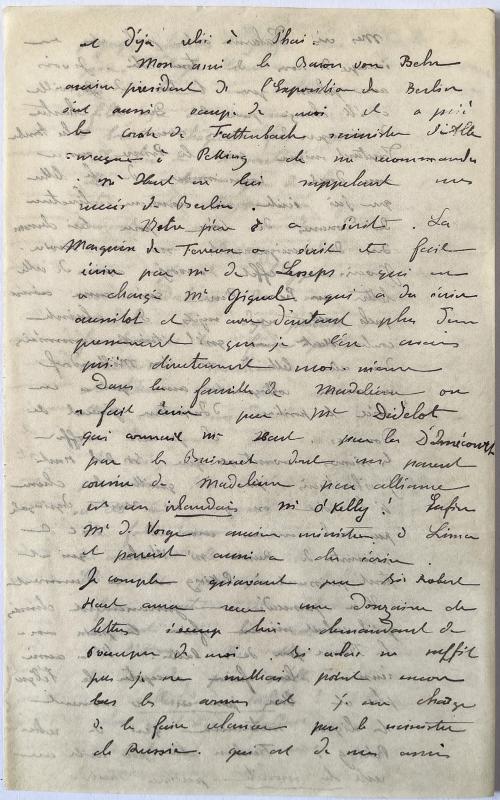 et déjà relié à Thaï.
Mon ami le Baron von Behr
ancien président de l'Exposition de Berlin
s'est aussi occupé de moi et a prié
le Comte de Fattenbach ministre d'Alle
=magne à Pekking de me recommander
à Mr Hart en lui rappelant mes
succès de Berlin.
Notre père a écrit. La
Marquise de a écrit et fait
écrire par Mr de Lesseps qui en
a chargé Mr Giquel qui a du écrire
aussitot et avec d'autant plus d'em
pressement que je l'en avais
prié directement moi-même
Dans la famille de Madeleine on
a fait écrire par Mr Didelot
qui connait Mr Hart par les D'Amécourt
par le dont un parent
cousin de Madeleine par alliance
est un irlandais Mr O'Kelly! Enfin
Mr de Vorge ancien ministre à Lima
et parent aussi a dû écrire.
Je compte qu'avant peu Sir Robert
Hart aura reçu une douzaine de
lettres lui demandant de
s'occuper de moi. Si cela ne suffit
pas je ne mettrai point encore
bas les armes et je me charge
de le faire relancer par le ministre
de Russie. qui est de mes amis